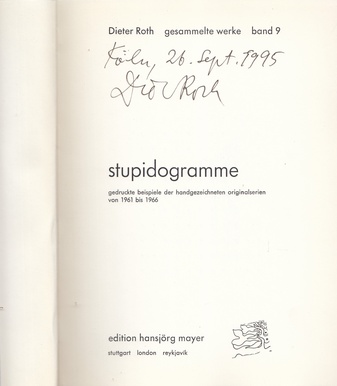 Dieter Roth gesammelte werke band 9
Köln, 26. Sept. 1995
Diet Roth
stupidogramme
gedruckte beispiele der handgezeichneten originalserien
von 1961 bis 1966
edition hansjörg mayer
stuttgart london reykjavik